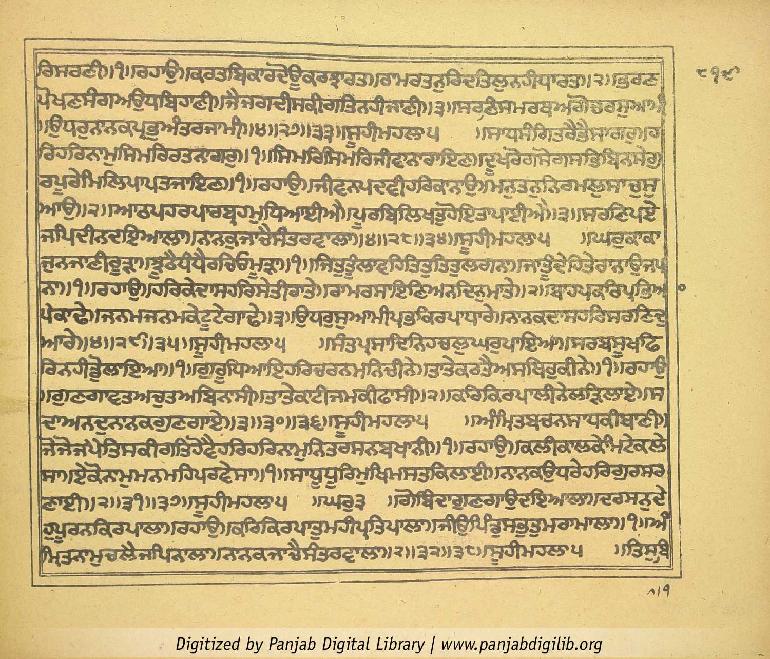 ੮੧੯
ਰਿਸਰਣੀ॥੧॥ਰਹਾਉ॥ਕਰਤਬਿਕਾਰਦੋਊਕਰਝਾਰਤ॥ਰਾਮਰਤਨੁਰਿਦਤਿਲੁਨਹੀਧਾਰਤ॥੨॥ਭਰਣ
ਪੋਖਣਸੰਗਿਅਉਧਬਿਹਾਣੀ॥ਜੈਜਗਦੀਸਕੀਗਤਿਨਹੀਜਾਣੀ॥੩॥ਸਰਣਿਸਮਰਥਅਗੋਚਰਸੁਆਮੀ
॥ਉਧਰੁਨਾਨਕਪ੍ਰਭੁਅੰਤਰਜਾਮੀ॥੪॥੨੭॥੩੩॥ਸੂਹੀਮਹਲਾ੫ ॥ਸਾਧਸੰਗਿਤਰੈਭੈਸਾਗਰੁ॥ਹ
ਰਿਹਰਿਨਾਮੁਸਿਮਰਿਰਤਨਾਗਰੁ॥੧॥ਸਿਮਰਿਸਿਮਰਿਜੀਵਾਨਾਰਾਇਣ॥ਦੂਖਰੋਗਸੋਗਸਭਿਬਿਨਸੇਗੁ
ਰਪੂਰੇਮਿਲਿਪਾਪਤਜਾਇਣ॥੧॥ਰਹਾਉ॥ਜੀਵਨਪਦਵੀਹਰਿਕਾਨਾਉ॥ਮਨੁਤਨੁਨਿਰਮਲੁਸਾਚੁਸੁ
ਆਉ॥੨॥ਆਠਪਹਰਪਾਰਬ੍ਰਹਮੁਧਿਆਈਐ॥ਪੂਰਬਿਲਿਖਤੁਹੋਇਤਾਪਾਈਐ॥੩॥ਸਰਣਿਪਏ
ਜਪਿਦੀਨਦਇਆਲਾ॥ਨਾਨਕੁਜਾਚੈਸੰਤਰਵਾਲਾ॥੪॥੨੮॥੩੪॥ਸੂਹੀਮਹਲਾ੫ ॥ਘਰਕਾਕਾ
ਜੁਨਜਾਣੀਰੂੜਾ॥ਝੂਠੈਧੰਧੈਰਚਿਓਮੂੜਾ॥੧॥ਜਿਤੁਤੂੰਲਾਵਹਿਤਿਤੁਤਿਤੁਲਗਨਾ॥ਜਾਤੂੰਦੇਹਿਤੇਰਾਨਾਉਜਪ
ਨਾ॥੧॥ਰਹਾਉ॥ਹਰਿਕੇਦਾਸਹਰਿਸੇਤੀਰਾਤੇ॥ਰਾਮਰਸਾਇਣਿਅਨਦਿਨੁਮਾਤੇ॥੨॥ਬਾਹਪਕਰਿਪ੍ਰਭਿਆ
ਪੇਕਾਢੇ॥ਜਨਮਜਨਮਕੇਟੂਟੇਗਾਢੇ॥੩॥ਉਧਰੁਸੁਆਮੀਪ੍ਰਭਕਿਰਪਾਧਾਰੇ॥ਨਾਨਕਦਾਸਹਰਿਸਰਣਿਦੁ
ਆਰੇ॥੪॥੨੯॥੩੫॥ਸੂਹੀਮਹਲਾ੫ ॥ਸੰਤਪ੍ਰਸਾਦਿਨਿਹਚਲੁਘਰੁਪਾਇਆ॥ਸਰਬਸੂਖਫਿ
ਰਿਨਹੀਡੋੁਲਾਇਆ॥੧॥ਗੁਰੂਧਿਆਇਹਰਿਚਰਨਮਨਿਚੀਨੇ॥ਤਾਤੇਕਰਤੈਅਸਥਿਰੁਕੀਨੇ॥੧॥ਰਹਾਉ
॥ਗੁਣਗਾਵਤਅਚੁਤਅਬਿਨਾਸੀ॥ਤਾਤੇਕਾਟੀਜਮਕੀਫਾਸੀ॥੨॥ਕਰਿਕਿਰਪਾਲੀਨੇਲੜਿਲਾਏ॥ਸ
ਦਾਅਨਦੁਨਾਨਕਗੁਣਗਾਏ॥੩॥੩੦॥੩੬॥ਸੂਹੀਮਹਲਾ੫ ॥ਅੰਮ੍ਰਿਤਬਚਨਸਾਧਕੀਬਾਣੀ॥
ਜੋਜੋਜਪੈਤਿਸਕੀਗਤਿਹੋਵੈਹਰਿਹਰਿਨਾਮੁਨਿਤਰਸਨਬਖਾਨੀ॥੧॥ਰਹਾਉ॥ਕਲੀਕਾਲਕੇਮਿਟੇਕਲੇ
ਸਾ॥ਏਕੋਨਾਮੁਮਨਮਹਿਪਰਵੇਸਾ॥੧॥ਸਾਧੂਧੂਰਿਮੁਖਿਮਸਤਕਿਲਾਈ॥ਨਾਨਕਉਧਰੇਹਰਿਗੁਰਸਰ
ਣਾਈ॥੨॥੩੧॥੩੭॥ਸੂਹੀਮਹਲਾ੫ ॥ਘਰੁ੩ ॥ਗੋਬਿੰਦਾਗੁਣਗਾਉਦਇਆਲਾ॥ਦਰਸਨੁਦੇ
ਹੁਪੂਰਨਕਿਰਪਾਲਾ॥ਰਹਾਉ॥ਕਰਿਕਿਰਪਾਤੁਮਹੀਪ੍ਰਤਿਪਾਲਾ॥ਜੀਉਪਿੰਡੁਸਭੁਤੁਮਰਾਮਾਲਾ॥੧॥ਅੰ
ਮ੍ਰਿਤਨਾਮੁਚਲੈਜਪਿਨਾਲਾ॥ਨਾਨਕੁਜਾਚੈਸੰਤਰਵਾਲਾ॥੨॥੩੨॥੩੮॥ਸੂਹੀਮਹਲਾ੫ ॥ਤਿਸੁਬਿ
Digitized by Panjab Digital Library | www.panjabdigilib.org